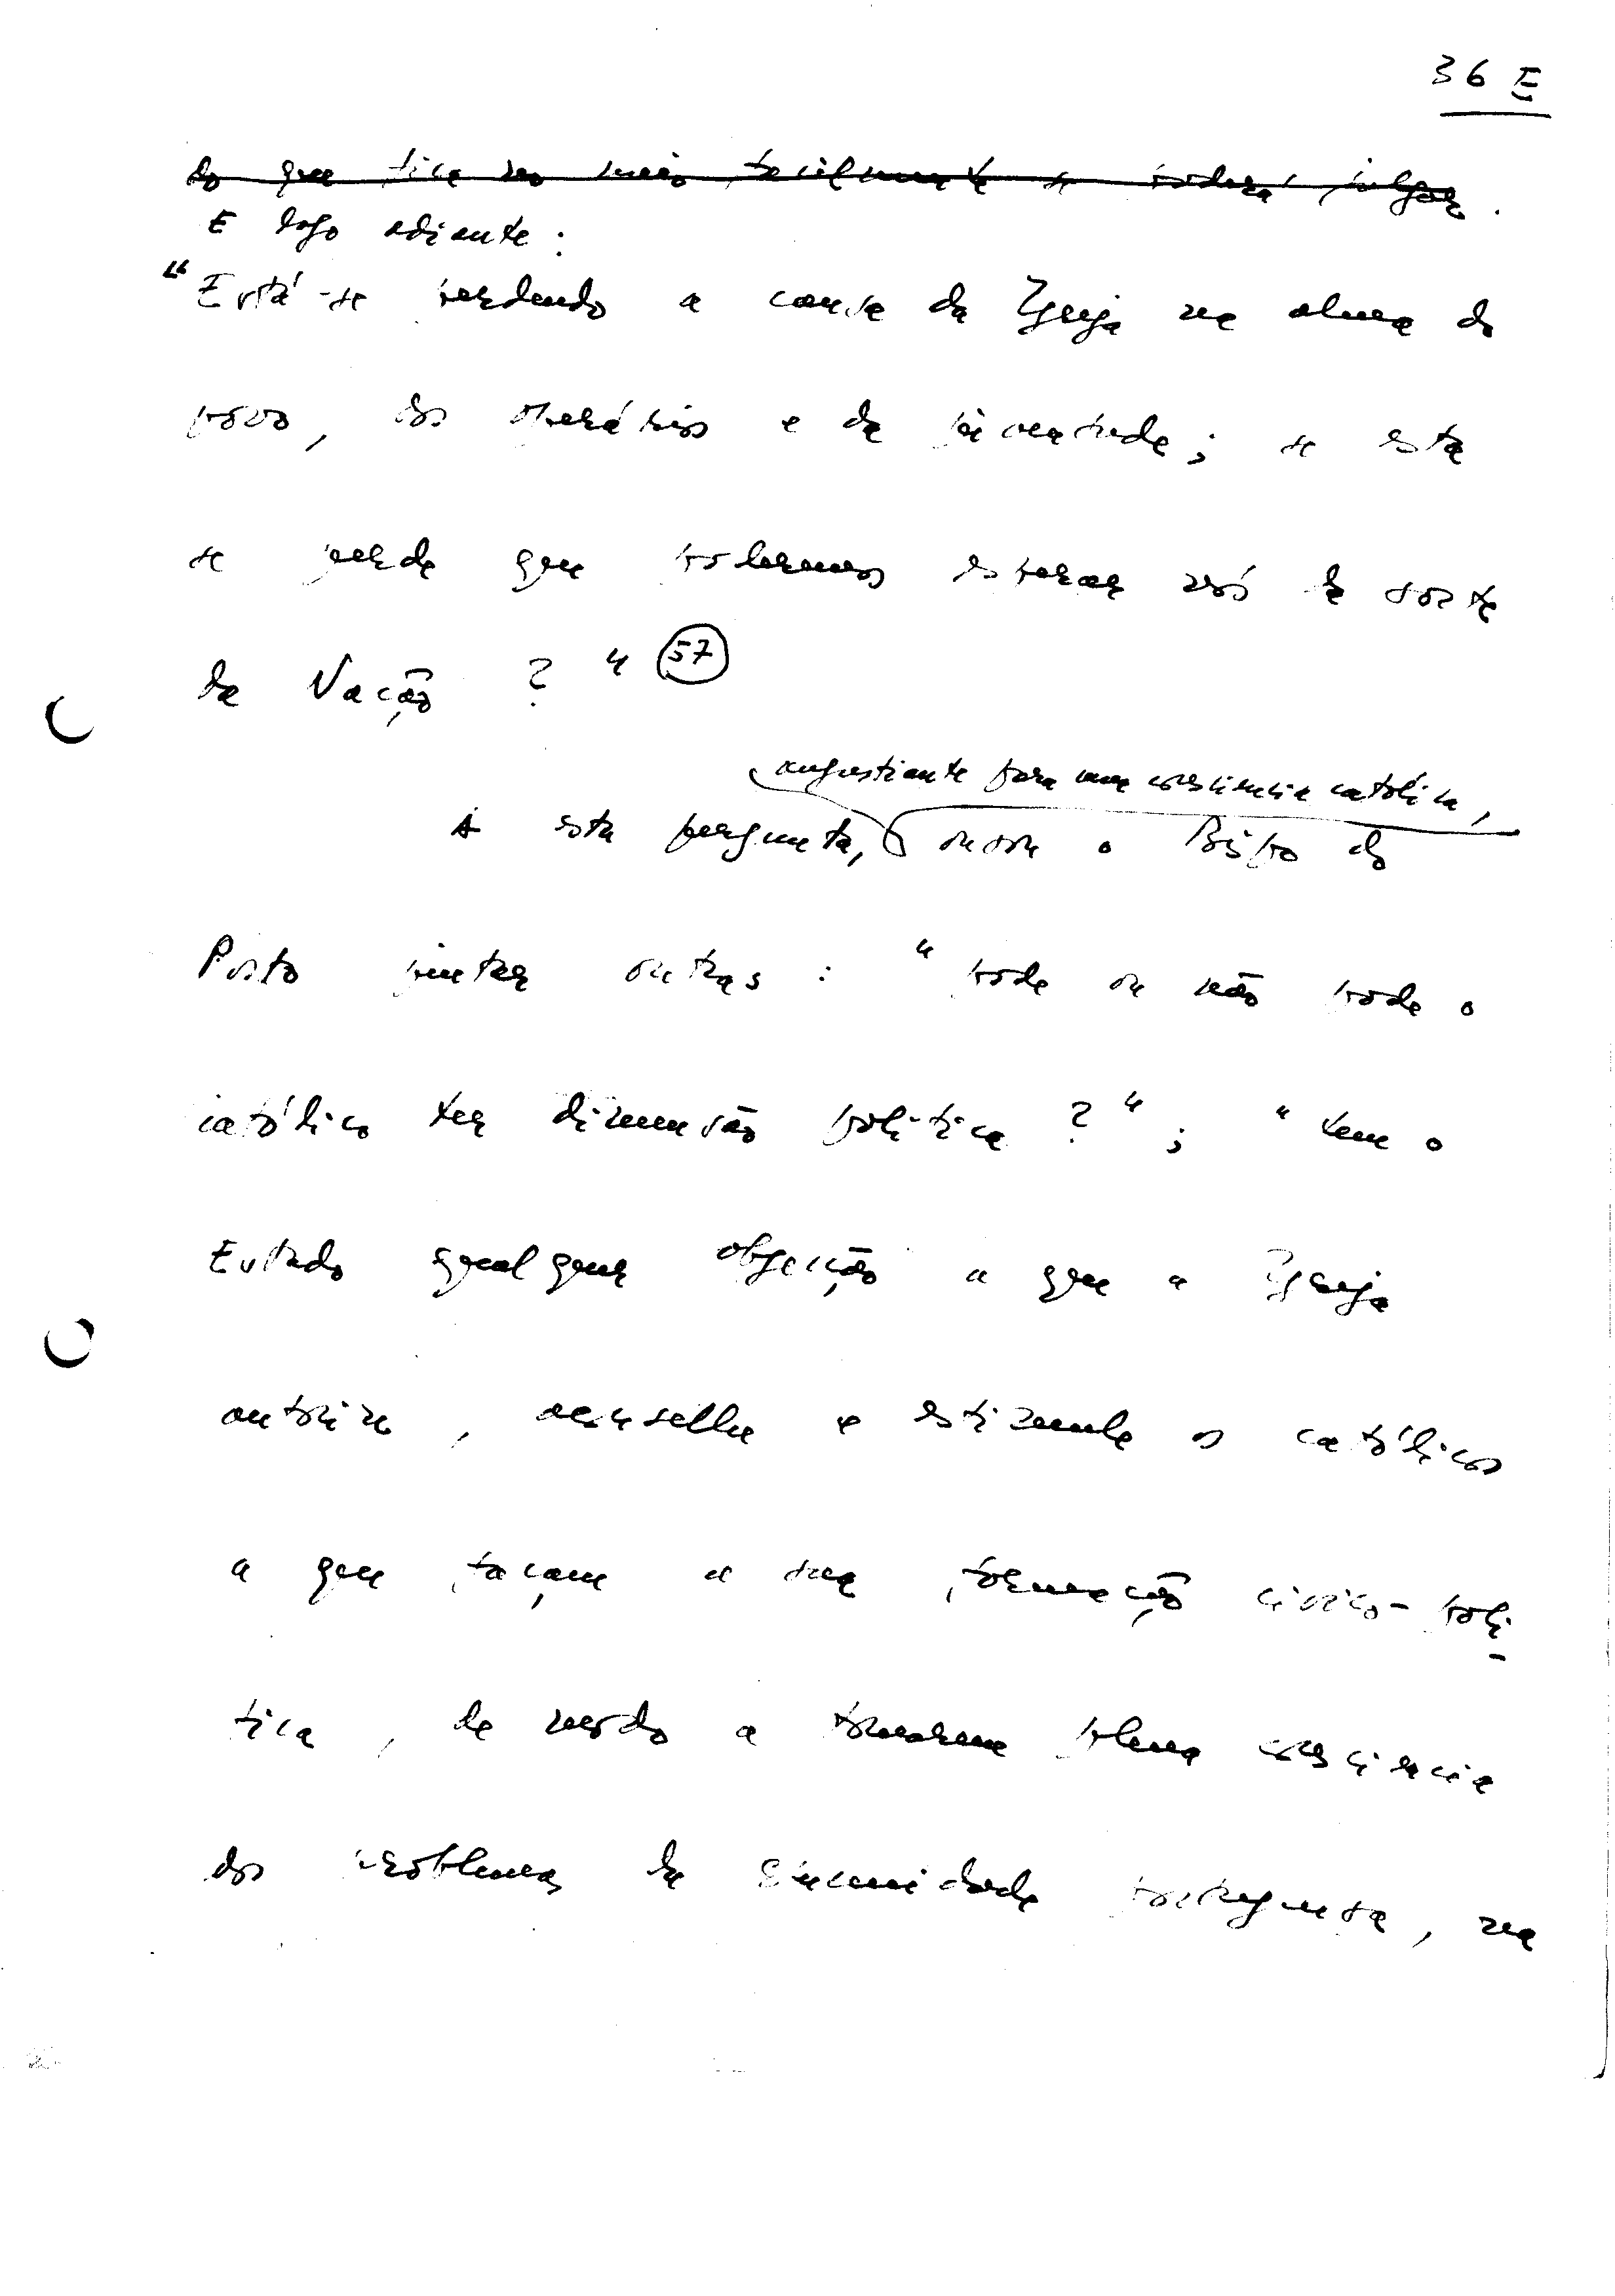 36 E
do que fica ao meio facilmente se poderá julgar.
E logo adiante:
"Está-se perdendo a causa da Igreja na alma do
povo, dos operários e da juventude; se esta
se perde que podemos esperar nós da sorte
da Nação?" (57)
angustiante para uma consciência católica,
A esta pergunta, ousou o Bispo do
Porto juntar outras: "pode ou não pode o
católico ter dimensão política?"; "tem o
Estado qualquer objecção a que a Igreja
autorize, aconselhe e estimule os católicos
a que façam a sua formação cívico-polí-
tica, de modo a tomarem plena consciência
dos problemas da comunidade portuguesa, na